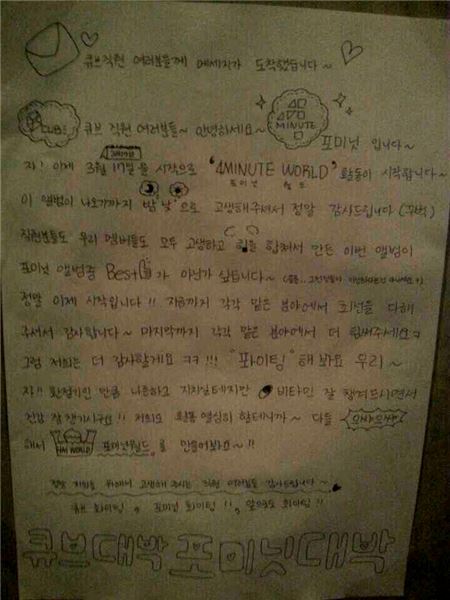 큐브직원 여러분들께 메세지가 도착했습니다~
CUBE 큐브 직원 여러분들~ 안녕하세요~ 4MINUTE 포미닛 입니다~
자! 이제 3월 17일을 시작으로 '4MINUTE WORLD' 활동이 시작합니다~
포미닛 월드
이 앨범이 나오기까지 밤 낮으로 고생해주셔서 정말 감사드립니다 (꾸벅)
직원분들도 우리 멤버들도 모두 고생하고 힘을 합쳐서 만든 이번 앨범이
포미닛 앨범중 Best가 아닌가 싶습니다~
정말 이제 시작입니다!! 지금까지 각각 맡은 분야에서 최선을 다해
주셔서 감사합니다~ 마지막까지 각각 맡은 분야에서 더 힘써주세요ㅋ
그럼 저희는 더 감사할게요 ㅋㅋ!!! "화이팅" 해봐요 우리~
자!! 환절기인 만큼 나른하고 지치실테지만 비타민 잘 챙겨드시면서
건강 잘 챙기시구요!! 저희도 활동 열심히 할테니까~ 다들 으쌰으쌰
해서 4MI WORLD 포미닛월드를 만들어봐요~!!
정말 저희를 위해서 고생해 주시는 직원 여러분들 감사드립니다~
큐브 화이팅, 포미닛 화이팅!!, 앞으로도 화이팅!!
큐브대박 포미닛대박